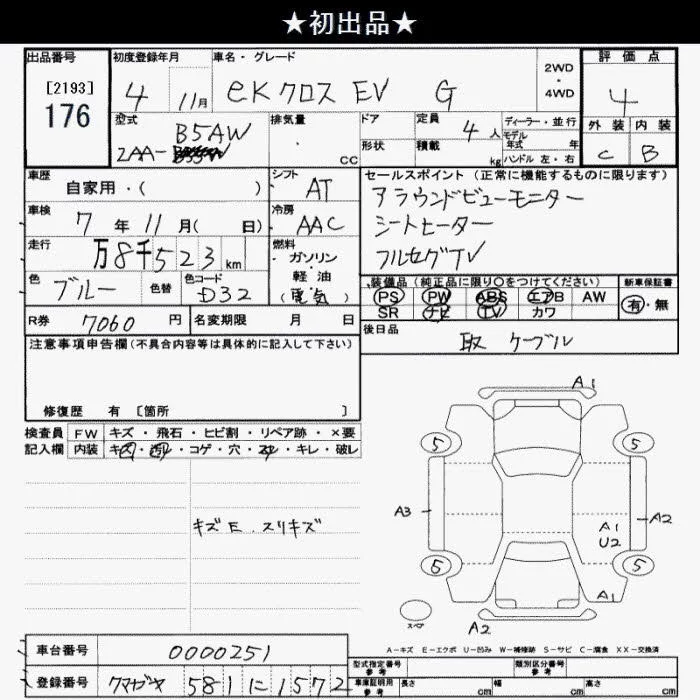 ★初出品★
出品番号
[2193]
176
初度登録年月
4 11月
車名・グレード
eKクロス EV G
2WD
・
4WD
評価点
4
外装 内装
C B
型式
B5AW
ZAA-
排気量
CC
ドア
形状
定員 4人
積載 kg
ディーラー・並行
モデル
年式 年
ハンドル 左・右
車歴
自家用・( )
シフト
AT
車検
7年11月( 日)
冷房
AAC
走行
万8千523km
燃料
ガソリン
軽・油
(電気)
色
ブルー
色替
色コード
D32
R券 7060円
名変期限 月 日
セールスポイント (正常に機能するものに限ります)
アラウンドビューモニター
シートヒーター
フルセグTV
装備品(純正品に限り○をつけてください)
新車保証書
PS PW ABS エアB AW
SR ナビ TV カワ
有・無
後日品
取 ケーブル
注意事項申告欄(不具合内容等は具体的に記入して下さい)
修復歴 有 [箇所 ]
検査員
記入欄
FW キズ・飛石・ヒビ割・リペア跡・×要
内装 キズ・ ・コゲ・穴・ ・キレ・破レ
キズE スリキズ
A1
5 5
A3
A2
A1
U2
5 5
A1
スペア
A2
A-キズ E-エクボ U-凹み W-補修跡 S-サビ C-腐食 XX-交換済
車台番号 0000251
登録番号 クマガヤ 581 に 1572
型式指定番号
参考
類別区分番号
参考
車庫証明用
参考
長さ cm 幅 cm 高さ cm